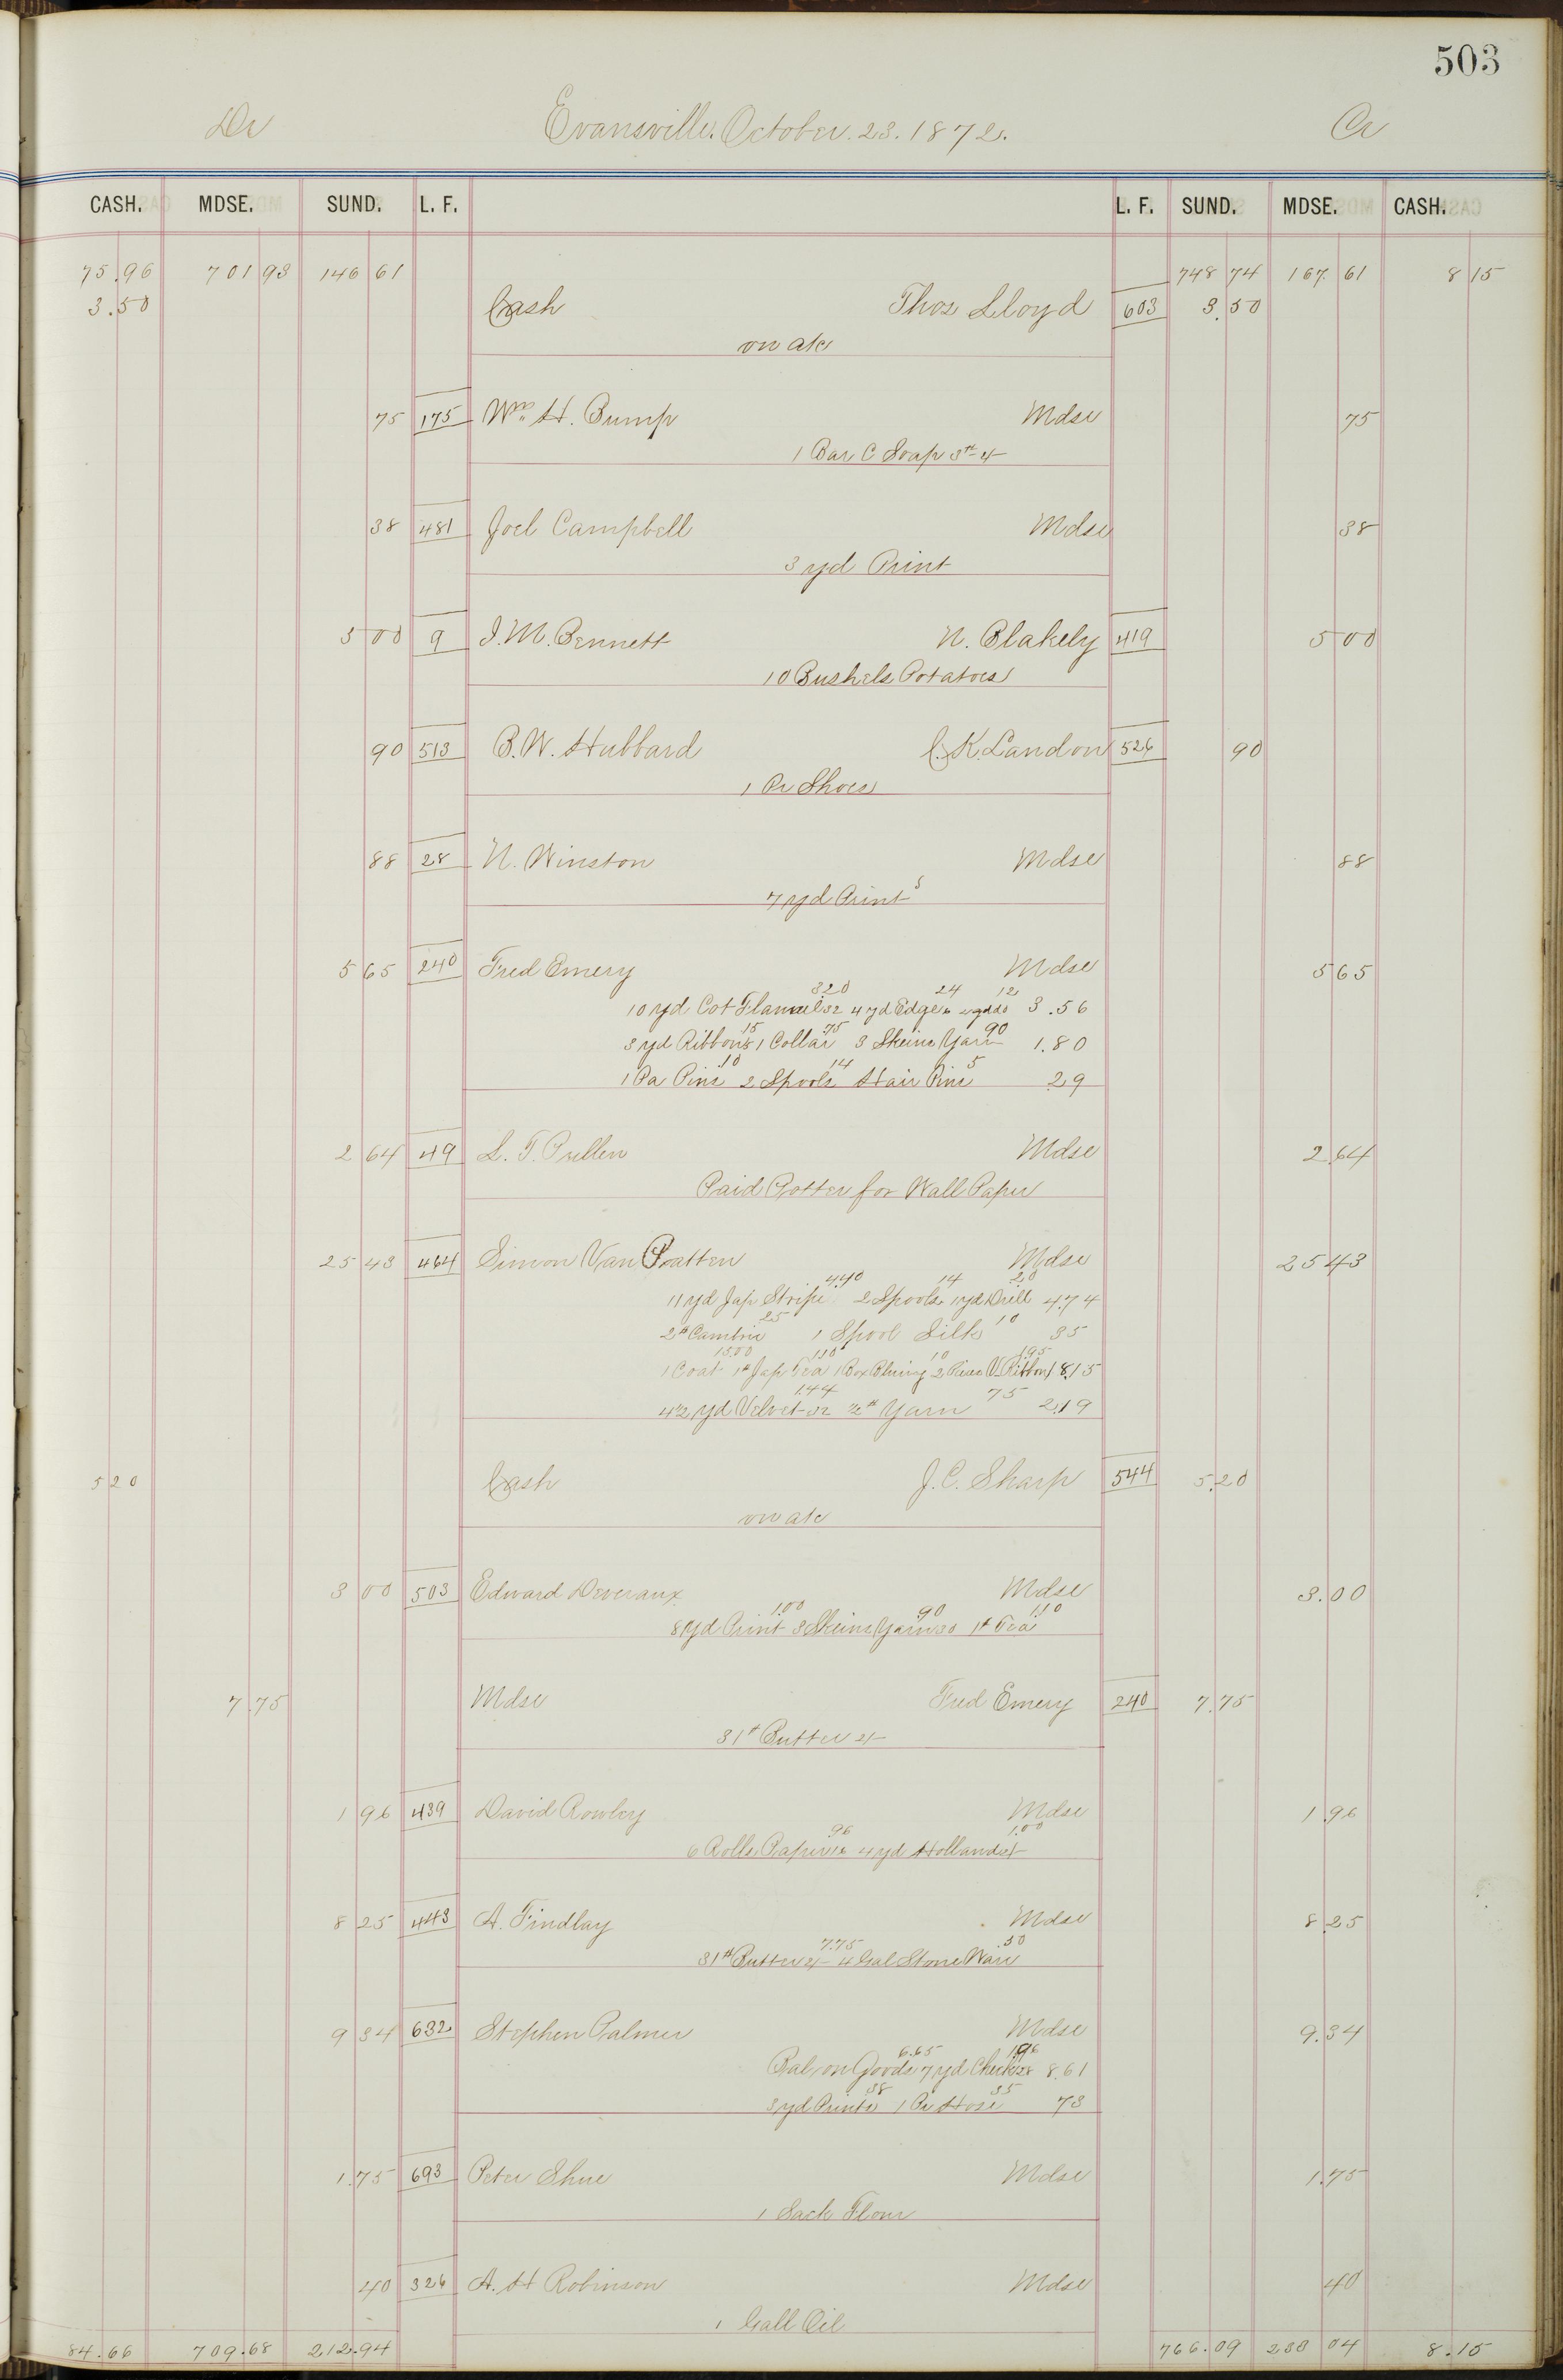 503
Dr Evansville. October. 23. 1872. Cr
CASH. MDSE. SUND. L. F. L. F. SUND. MDSE. CASH.
75.96 701 93 146 61 748 74 167. 61 8 15
3.50 Cash Thos Lloyd 603 3.50
on a/c
75 175 Wm H. Bump Mdse 75
1 Bar C Soap 3# 4
38 481 Joel Campbell Mdse 38
3 yd Print
5 00 9 I. M. Bennett N. Blakely 419 5 00
10 Bushels Potatoes
90 513 B. W. Hubbard C. K. Landon 526 90
1 Pr Shoes
88 28 N. Winston Mdse 88
7 yd Prints
5 65 240 Fred Emery Mdse 5 65
320 24 12
10 yd Cot Flannel 32 4 yd Edge 6 2 yd do 3.56
15 75 90
3 yd Ribbon 5 1 Collar 3 Skeins Yarn 1.80
10 14 5
1 Pa Pins 2 Spools Hair Pins 29
2 64 49 L. T. Pullen Mdse 2.64
Paid Potter for Wall Paper
25 43 464 Simon Van Patten Mdse 25 43
4.40 14 20
11 yd Jap Stripe 2 Spools 1 yd Drill 4.74
25 10
2# Cambric 1 Spool Silk 35
15.00 110 10 1.95
1 Coat 1# Jap Tea 1 Box Bluing 2 Pieces V. Ribbon 18.15
1.44 75
4½ yd Velvet 32 ½# Yarn 2.19
5 20 Cash J. C. Sharp 544 5.20
on a/c
3 00 503 Edward Deveraux Mdse 3.00
1.00 90 1.10
8 yd Print 3 Skeins Yarn 30 1# Tea
7.75 Mdse Fred Emery 240 7.75
31# Butter 2/
1 96 439 David Rowley Mdse 1.96
96 1.00
6 Rolls Paper 16 4 yd Holland 2/
8 25 443 A. Findlay Mdse 8.25
7.75 50
31# Butter 2/ 4 Gal Stone Ware
9 34 632 Stephen Palmer Mdse 9.34
6.65 1.96
Bal. on Goods 7 yd Check 28 8.61
38 35
3 yd Prints 1 Pr Hose 73
1.75 693 Peter Shue Mdse 1.75
1 Sack Flour
40 326 A. H Robinson Mdse 40
1 Gall Oil
84.66 709.68 212.94 766.09 233 04 8.15